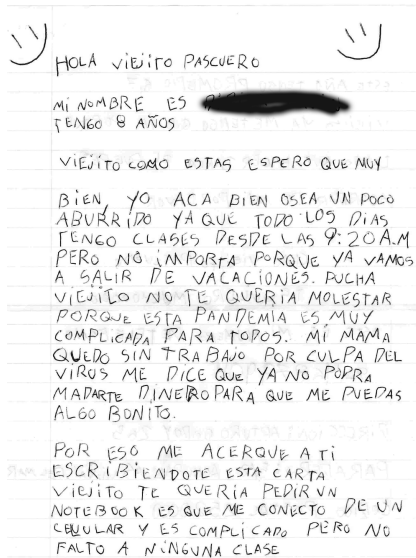 HOLA VIEJITO PASCUERO
MI NOMBRE ES
TENGO 8 AÑOS
VIEJITO COMO ESTAS ESPERO QUE MUY
BIEN, YO ACA BIEN OSEA UN POCO
ABURRIDO YA QUE TODO LOS DIAS
TENGO CLASES DESDE LAS 9:20 A.M
PERO NO IMPORTA PORQUE YA VAMOS
A SALIR DE VACACIONES. PUCHA
VIEJITO NO TE QUERIA MOLESTAR
PORQUE ESTA PANDEMIA ES MUY
COMPLICADA PARA TODOS. MI MAMA
QUEDO SIN TRABAJO POR CULPA DEL
VIRUS ME DICE QUE YA NO PODRA
MADARTE DINERO PARA QUE ME PUEDAS
ALGO BONITO.
POR ESO ME ACERQUE A TI
ESCRIBIENDOTE ESTA CARTA
VIEJITO TE QUERIA PEDIR UN
NOTEBOOK ES QUE ME CONECTO DE UN
CELULAR Y ES COMPLICADO PERO NO
FALTO A NINGUNA CLASE